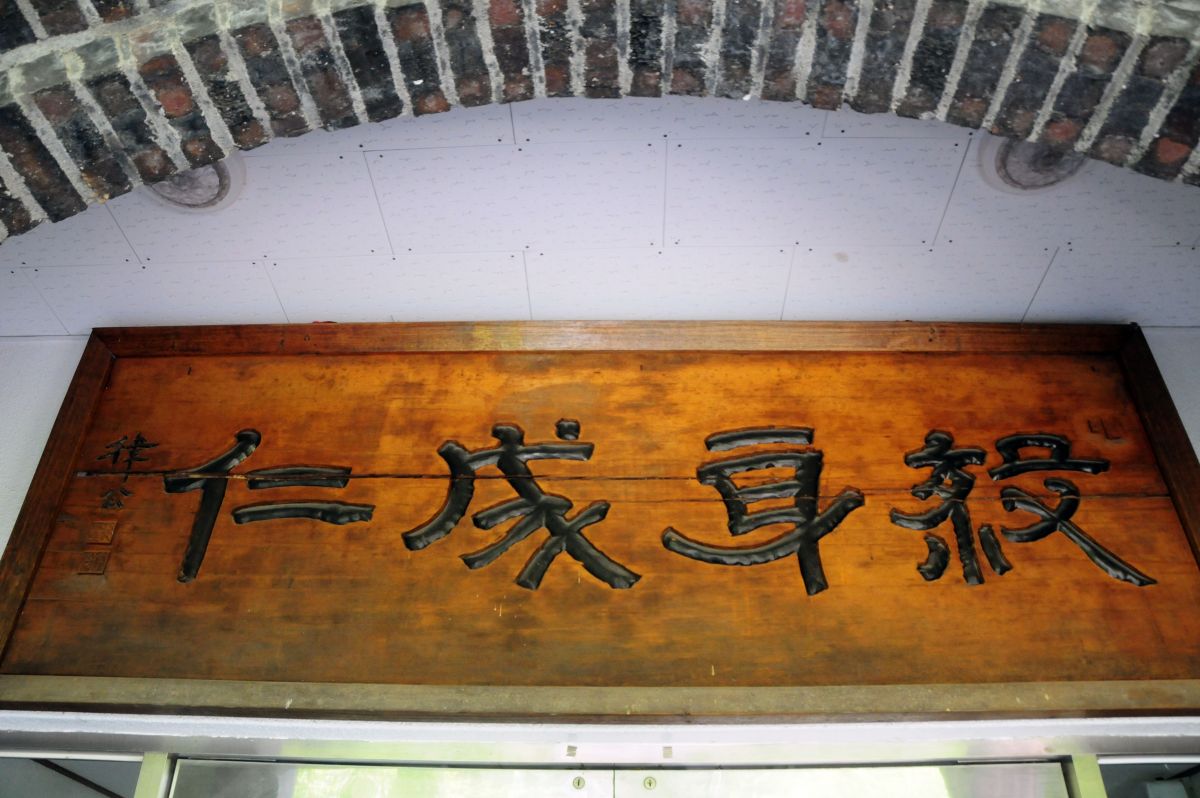 殺身成仁